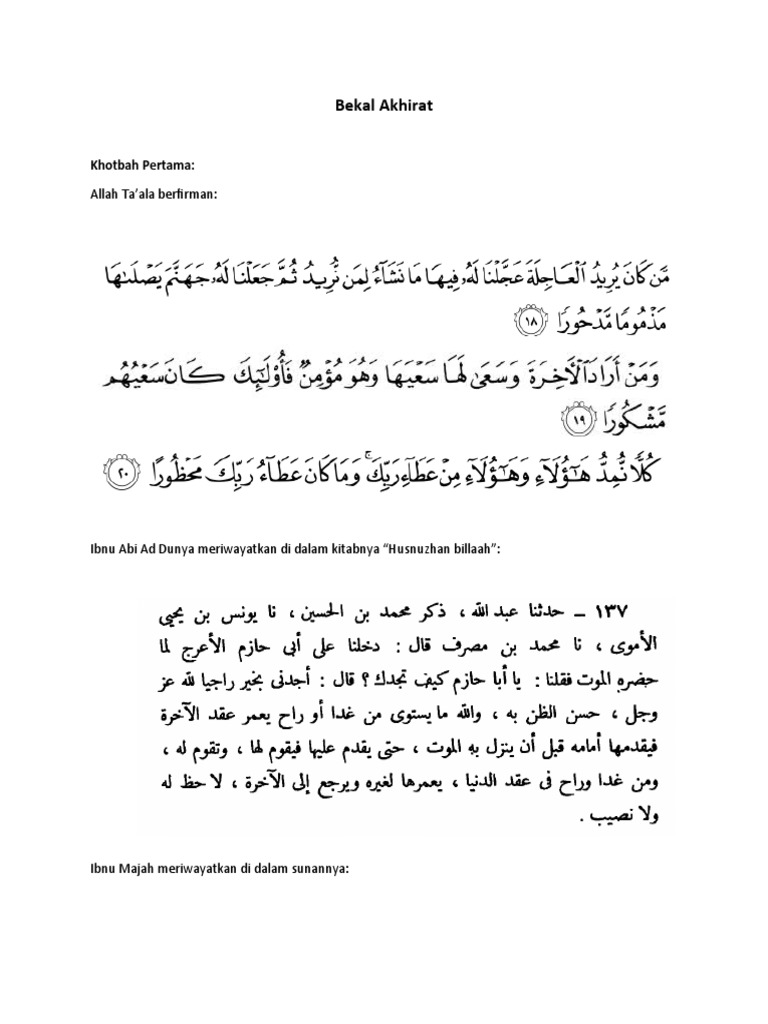 Bekal Akhirat
Khotbah Pertama:
Allah Ta’ala berfirman:
مَّن كَانَ يُرِيدُ ٱلْعَاجِلَةَ عَجَّلْنَا لَهُۥ فِيهَا مَا نَشَآءُ لِمَن نُّرِيدُ ثُمَّ جَعَلْنَا لَهُۥ جَهَنَّمَ يَصْلَىٰهَا
مَذْمُومًا مَّدْحُورًا ١٨
وَمَنْ أَرَادَ ٱلْأَخِرَةَ وَسَعَىٰ لَهَا سَعْيَهَا وَهُوَ مُؤْمِنٌ فَأُو۟لَـٰٓئِكَ كَانَ سَعْيُهُم
مَّشْكُورًا ١٩
كُلًّا نُّمِدُّ هَـٰٓؤُلَآءِ وَهَـٰٓؤُلَآءِ مِنْ عَطَآءِ رَبِّكَ ۚ وَمَا كَانَ عَطَآءُ رَبِّكَ مَحْظُورًا ٢٠
Ibnu Abi Ad Dunya meriwayatkan di dalam kitabnya “Husnuzhan billaah”:
١٣٧ ـ حدثنا عبد الله ، ذكر محمد بن الحسين ، نا يونس بن يحيى
الأموى ، نا محمد بن مصرف قال : دخلنا على أبى حازم الأعرج لما
حضره الموت فقلنا : يا أبا حازم كيف تجدك ؟ قال : أجدنى بخير راجيا لله عز
وجل ، حسن الظن به ، والله ما يستوى من غدا أو راح يعمر عقد الآخرة
فيقدمها أمامه قبل أن ينزل به الموت ، حتى يقدم عليها فيقوم لها ، وتقوم له ،
ومن غدا وراح فى عقد الدنيا ، يعمرها لغيره ويرجع إلى الآخرة ، لا حظ له
ولا نصيب .
Ibnu Majah meriwayatkan di dalam sunannya: